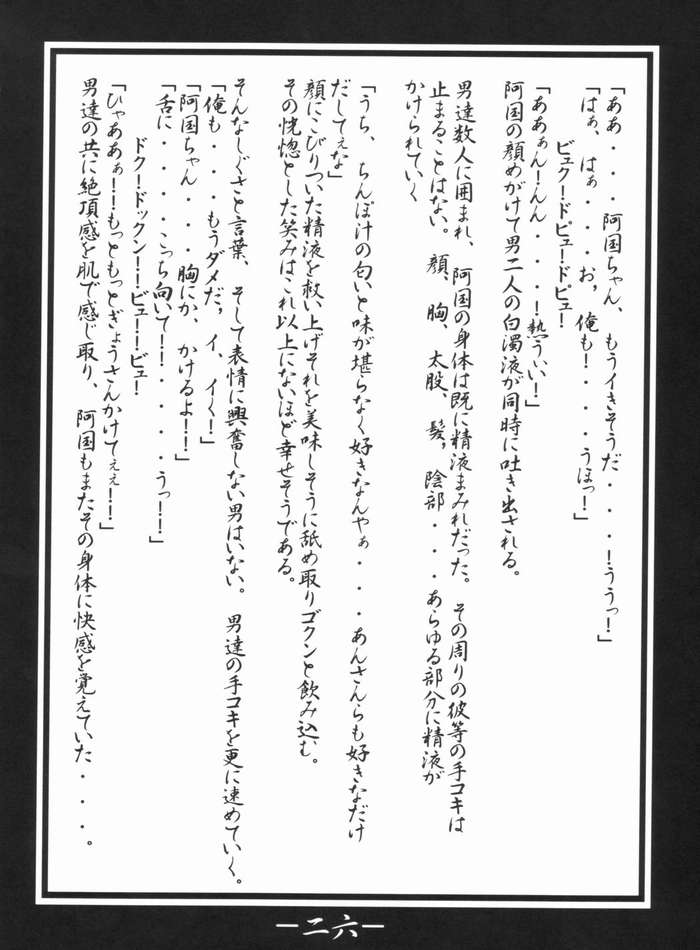 「ああ・・・阿国ちゃん、もうイきそうだ・・・！ううっ！」
「はぁ、はぁ・・・お，俺も！・・・・うほっ！」
ビュク！ドビュ！ドピュ！
「ああぁん！んん・・・！熱ういい！」
阿国の顔めがけて男二人の白濁液が同時に吐き出される。
男達数人に囲まれ、阿国の身体は既に精液まみれだった。その周りの彼等の手コキは
止まることはない。顔、胸、太股、髪，陰部・・・あらゆる部分に精液が
かけられていく
「うち、ちんぽ汁の匂いと味が堪らなく好きなんやぁ・・・あんさんらも好きなだけ
だしてぇな」
顔にこびりついた精液を救い上げそれを美味しそうに舐め取りゴクンと飲み込む。
その恍惚とした笑みはこれ以上にないほど幸せそうである。
そんなしぐさと言葉、そして表情に興奮しない男はいない。男達の手コキを更に速めていく。
「俺も・・・もうダメだ，イ、イく！」
「阿国ちゃん・・・胸にか、かけるよ！！」
「舌に・・・・こっち向いて！！・・・・うっ！！」
ドク！ドックン！！ビュー！！ビュ！
「ひゃああぁ！！もっともっとぎょうさんかけてぇぇ！！」
男達の共に絶頂感を肌で感じ取り、阿国もまたその身体に快感を覚えていた・・・。
－二六－